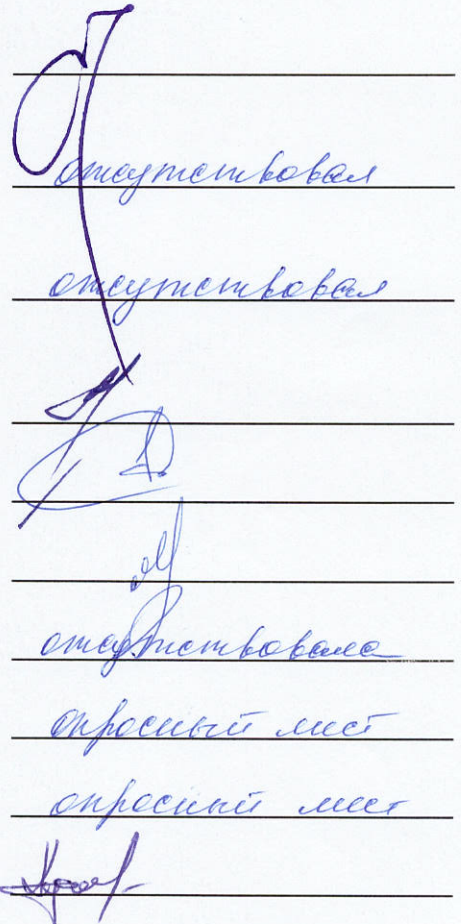 отсутствовал
отсутствовал
отсутствовала
опросный лист
опросный лист